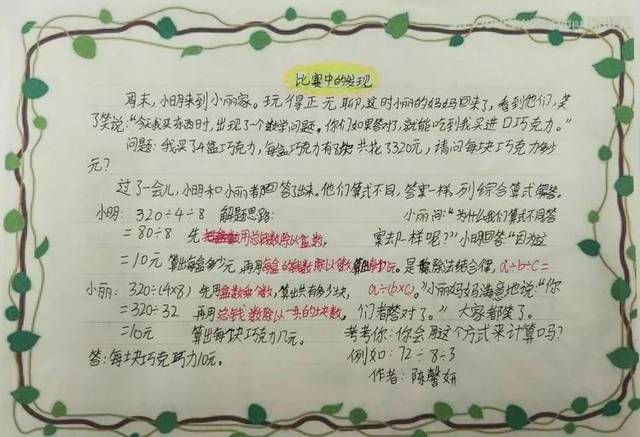 比赛中的发现
周末，小明来到小丽家。玩得正无聊，这时小丽的妈妈回来了，看到他们，笑
了笑说："今天我买东西时，出现了一个数学问题。你们如果答对了，就能吃到我买进口巧克力。"
问题：我买了4盒巧克力，每盒巧克力有8块共花了320元，请问每块巧克力多少
元？
过了一会儿，小明和小丽都回答了出来。他们算式不同，答案一样，列综合算式解答。
小明：320÷4÷8 解题思路：
=80÷8 先用总钱数除以盒数，
=10元 算出每盒多少元，再用每盒的钱数除以个数
小丽：320÷(4×8) 先用盒数乘个数，算出共有多少块，
=320÷32 再用总钱数除以一共的块数，
=10元 算出每个块巧克力几元。
答：每块巧克力10元。
小丽问："为什么我们算式不同答
案却一样呢？"小明回答"因为这
是除法结合律，a÷b÷c=
a÷(b×c)。"小丽妈妈满意地说："你
们答对了。"大家都笑了。
考考你：你会用这个方式来计算吗？
例如：72÷8÷3
作者：陈馨妍